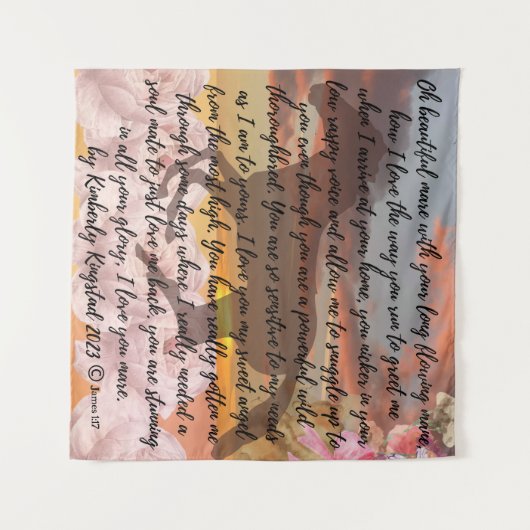 Oh beautiful mare with your long flowing mane,
how I love the way you run to greet me
when I arrive at your home, you nicker in your
low raspy voice and allow me to snuggle up to
you even though you are a powerful wild
thoroughbred. You are so sensitive to my needs
as I am to yours. I love you my sweet angel
from the most high. You have really gotten me
through some days where I really needed a
soul mate to just love me back, you are stunning
in all your glory. I love you mare.
by Kimberly Kingstad 2023 ©
James 1:17